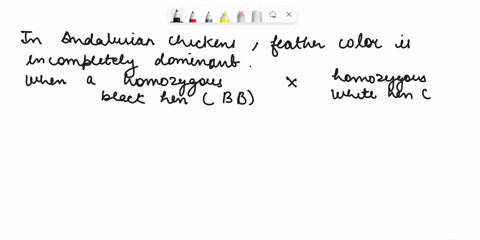 In Andalusian chickens, feather color is
incompletely dominant.
When a homozygous × homozygous
black hen (BB) white hen (